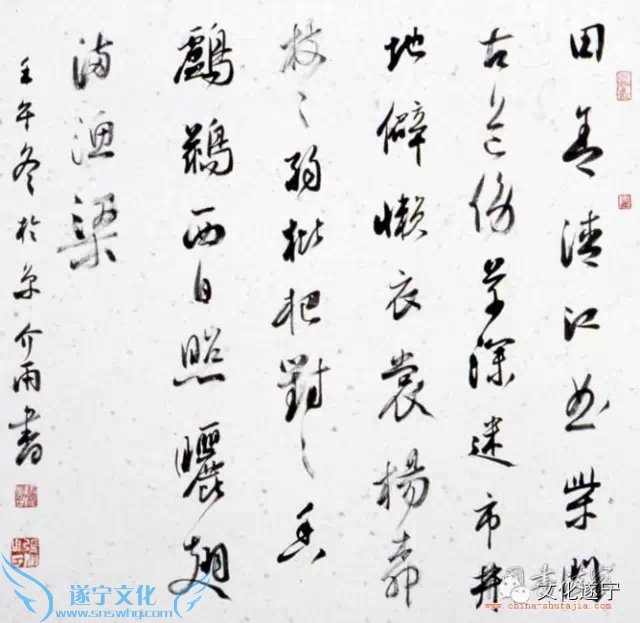 田舍清江曲柴門
古道傍草深迷市井
地僻懶衣裳楊柳
枝々弱枇杷對々香
鸕鷀西日照曬翅
滿漁梁
壬午冬於京介雨書
遂宁文化
www.snswhg.com
文化遂宁
www.china-shufajia.com